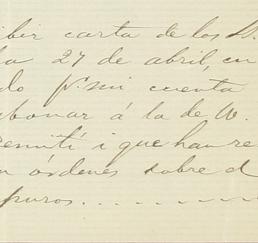 ibir carta de los S.
la 27 de abril, en
do p.r mi cuenta
abonar á la de W.
remití i que han re
n órdenes sobre d
puros